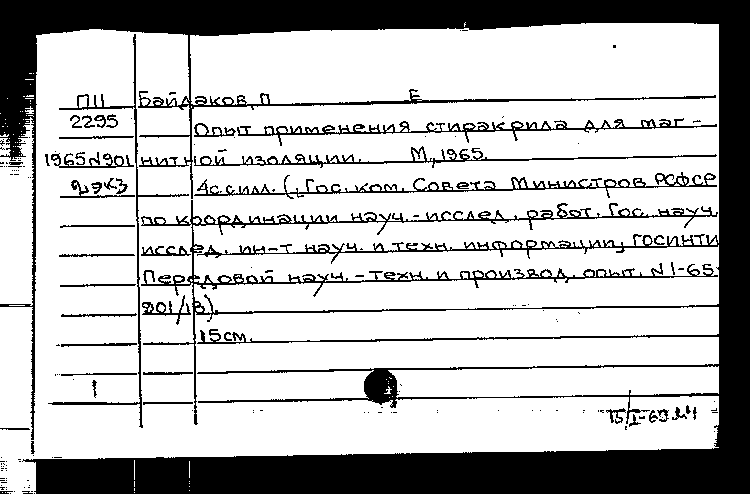 П11 Байдаков, П Е
2295 Опыт применения стиракрила для маг-
1965 N901 нитной изоляции. М., 1965.
2 экз 4 с силл. (Гос. ком. Совета Министров РСФСР
по координации науч.-исслед. работ. Гос. науч.
исслед. ин-т науч. и техн. информации, ГОСИНТИ
Передовой науч.-техн. и производ. опыт. N 1-65-
901/18).
15 см.
1
15/I-69